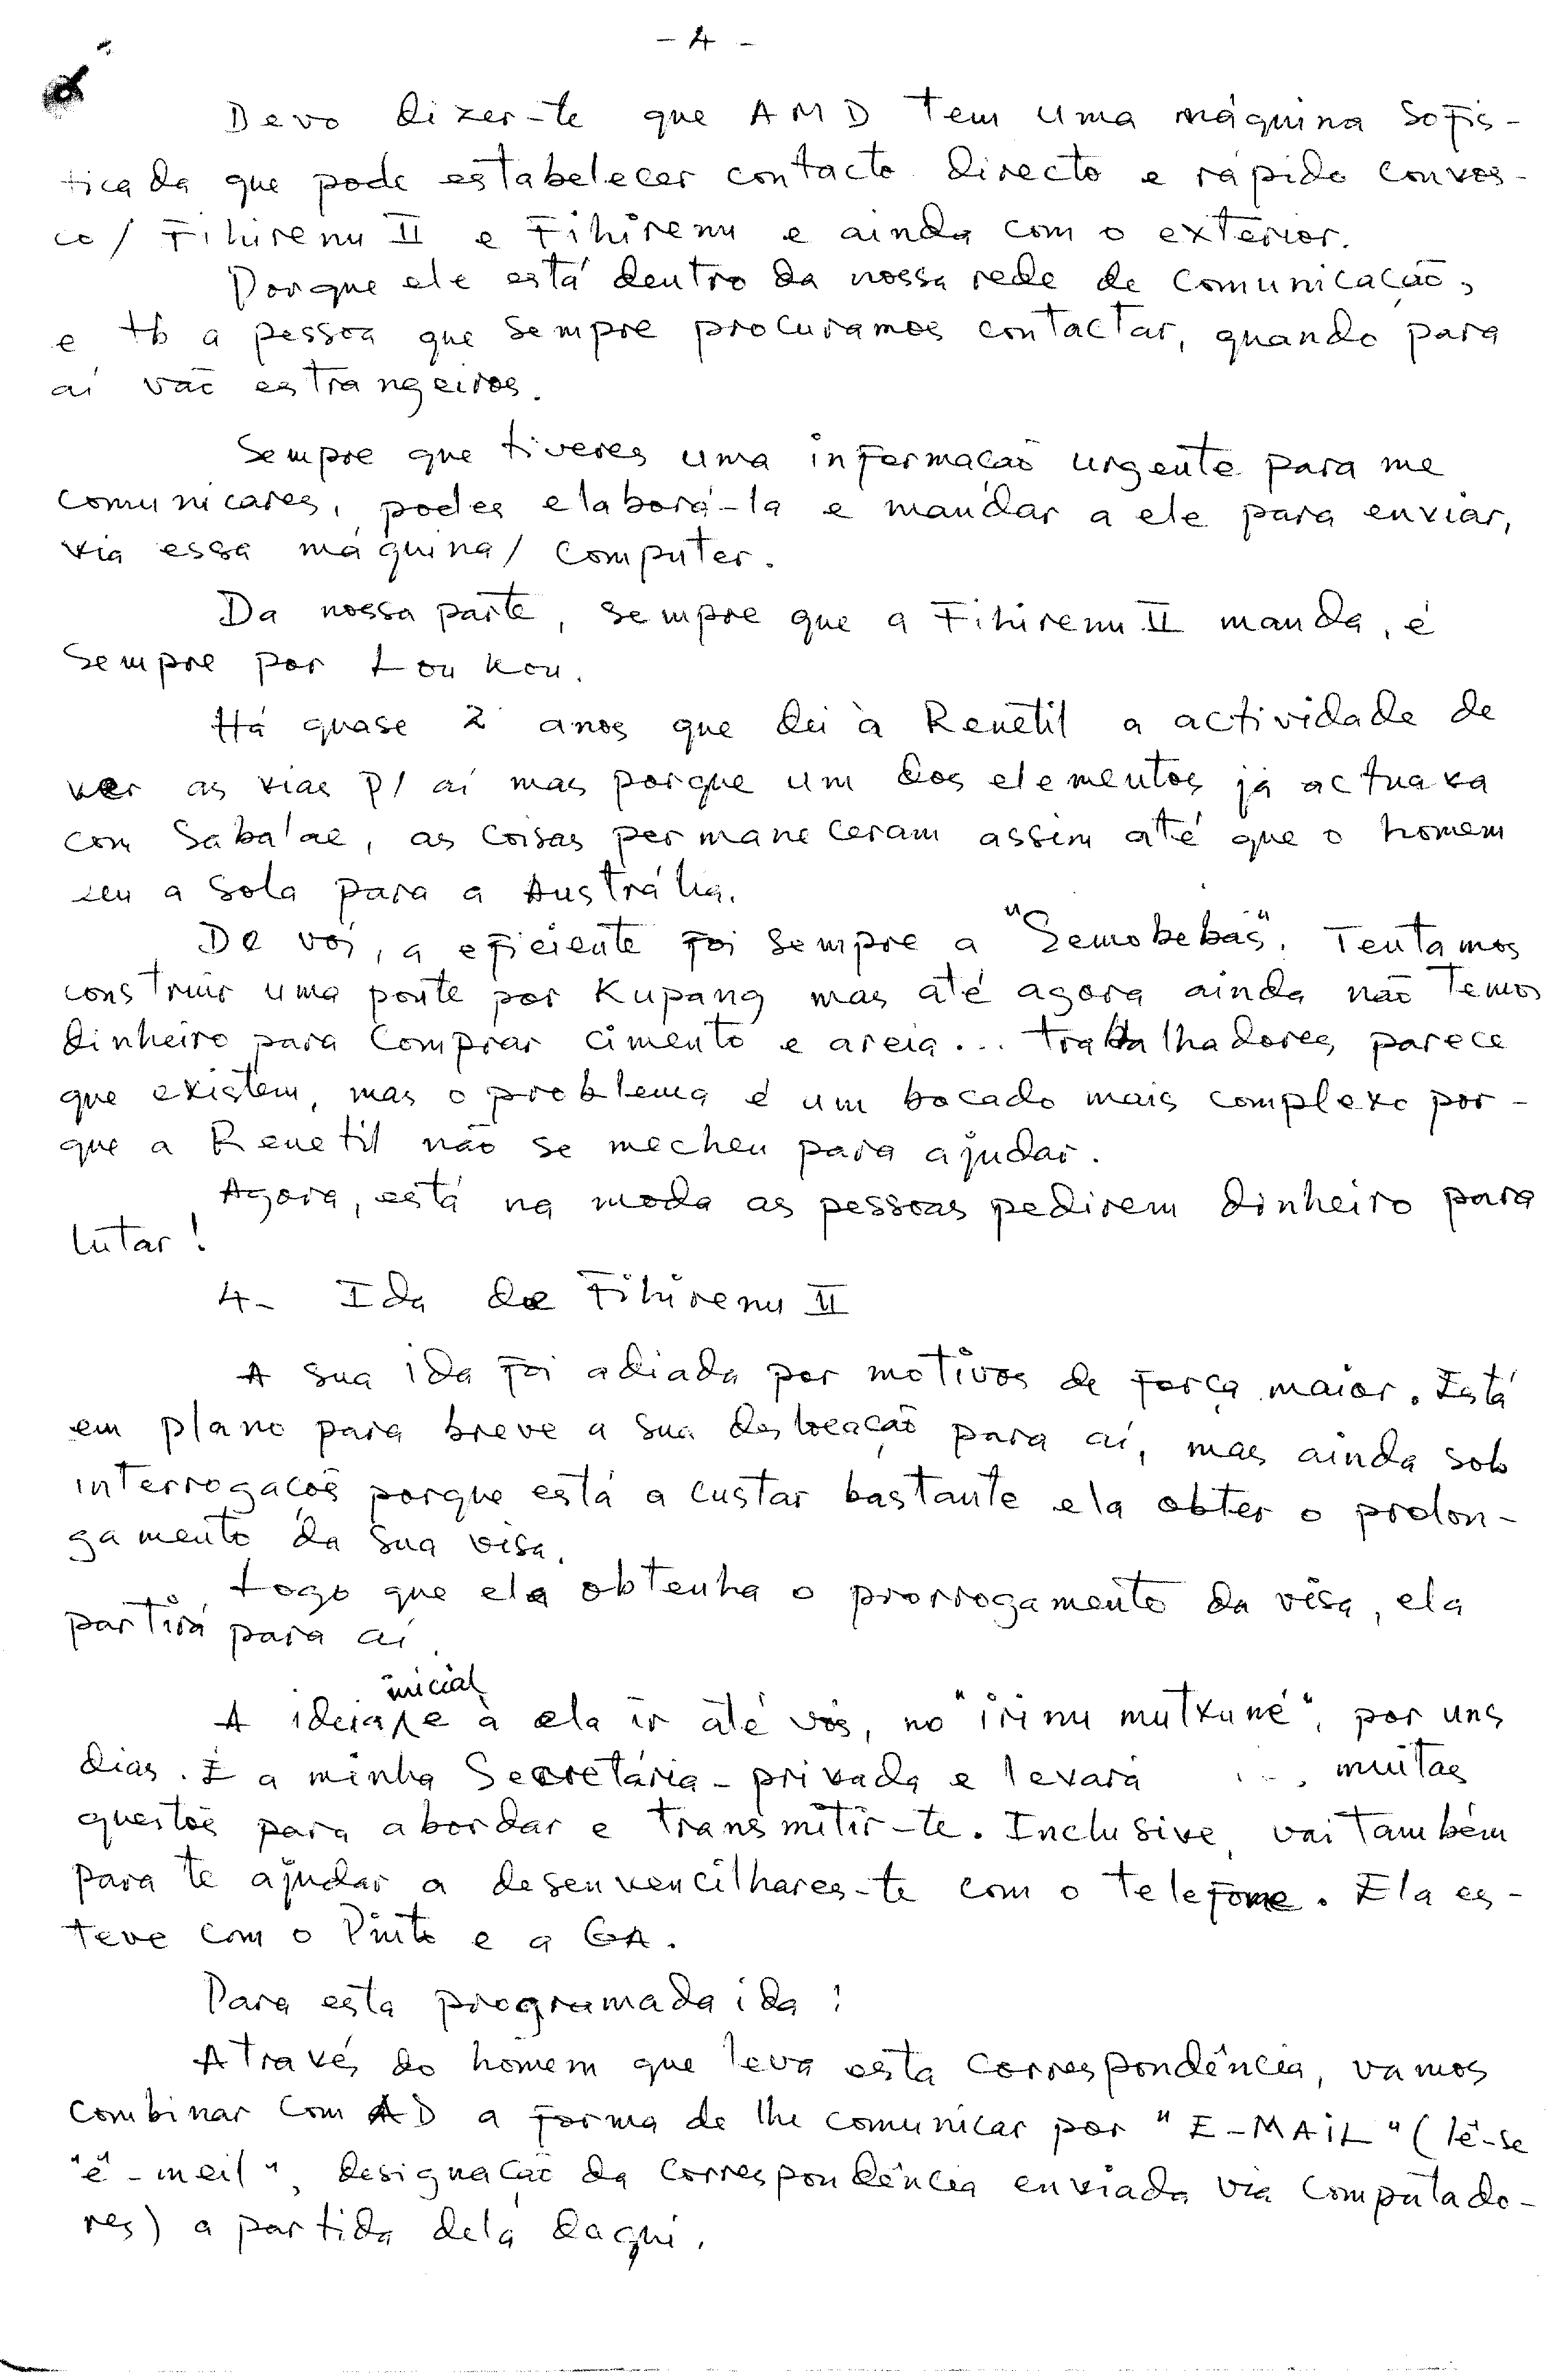 - 4 -
Devo dizer-te que AMD tem uma máquina sofis-
ticada que pode estabelecer contacto directo e rápido convos-
co/ Fihirenu II e Fihirenu e ainda com o exterior.
Porque ele está dentro da nossa rede de comunicação,
e tb a pessoa que sempre procuramos contactar, quando para
aí vão estrangeiros.
Sempre que tiveres uma informação urgente para me
comunicares, podes elaborá-la e mandar a ele para enviar,
via essa máquina/ computer.
Da nossa parte, sempre que a Fihirenu II manda, é
sempre por Lou Kou.
Há quase 2 anos que dei à Renetil a actividade de
ver as vias p/ aí mas porque um dos elementos já actuava
com Saba'ae, as coisas permaneceram assim até que o homem
deu a sola para a Austrália.
De vós, a eficiente foi sempre a "Semobebás". Tentamos
construir uma ponte por Kupang mas até agora ainda não temos
dinheiro para comprar cimento e areia... trabalhadores, parece
que existem, mas o problema é um bocado mais complexo por-
que a Renetil não se mecheu para ajudar.
Agora, está na moda as pessoas pedirem dinheiro para
lutar!
4- Ida de Fihirenu II
A sua ida foi adiada por motivos de força maior. Está
em plano para breve a sua deslocação para aí, mas ainda sob
interrogação porque está a custar bastante ela obter o prolon-
gamento da sua visa.
Logo que ela obtenha o prorrogamento da visa, ela
partirá para aí.
inicial
A ideia é a ela ir até vós, no "irinu mutxuné", por uns
dias. É a minha Secretária-privada e levará ... muitas
questões para abordar e transmitir-te. Inclusive, vai também
para te ajudar a desenvencilhares-te com o telefone. Ela es-
teve com o Pinto e a GA.
Para esta programada ida:
Através do homem que leva esta correspondência, vamos
combinar com AD a forma de lhe comunicar por "E-MAIL" (lê-se
"ê-meil", designação da correspondência enviada via computado-
res) a partida dela daqui.